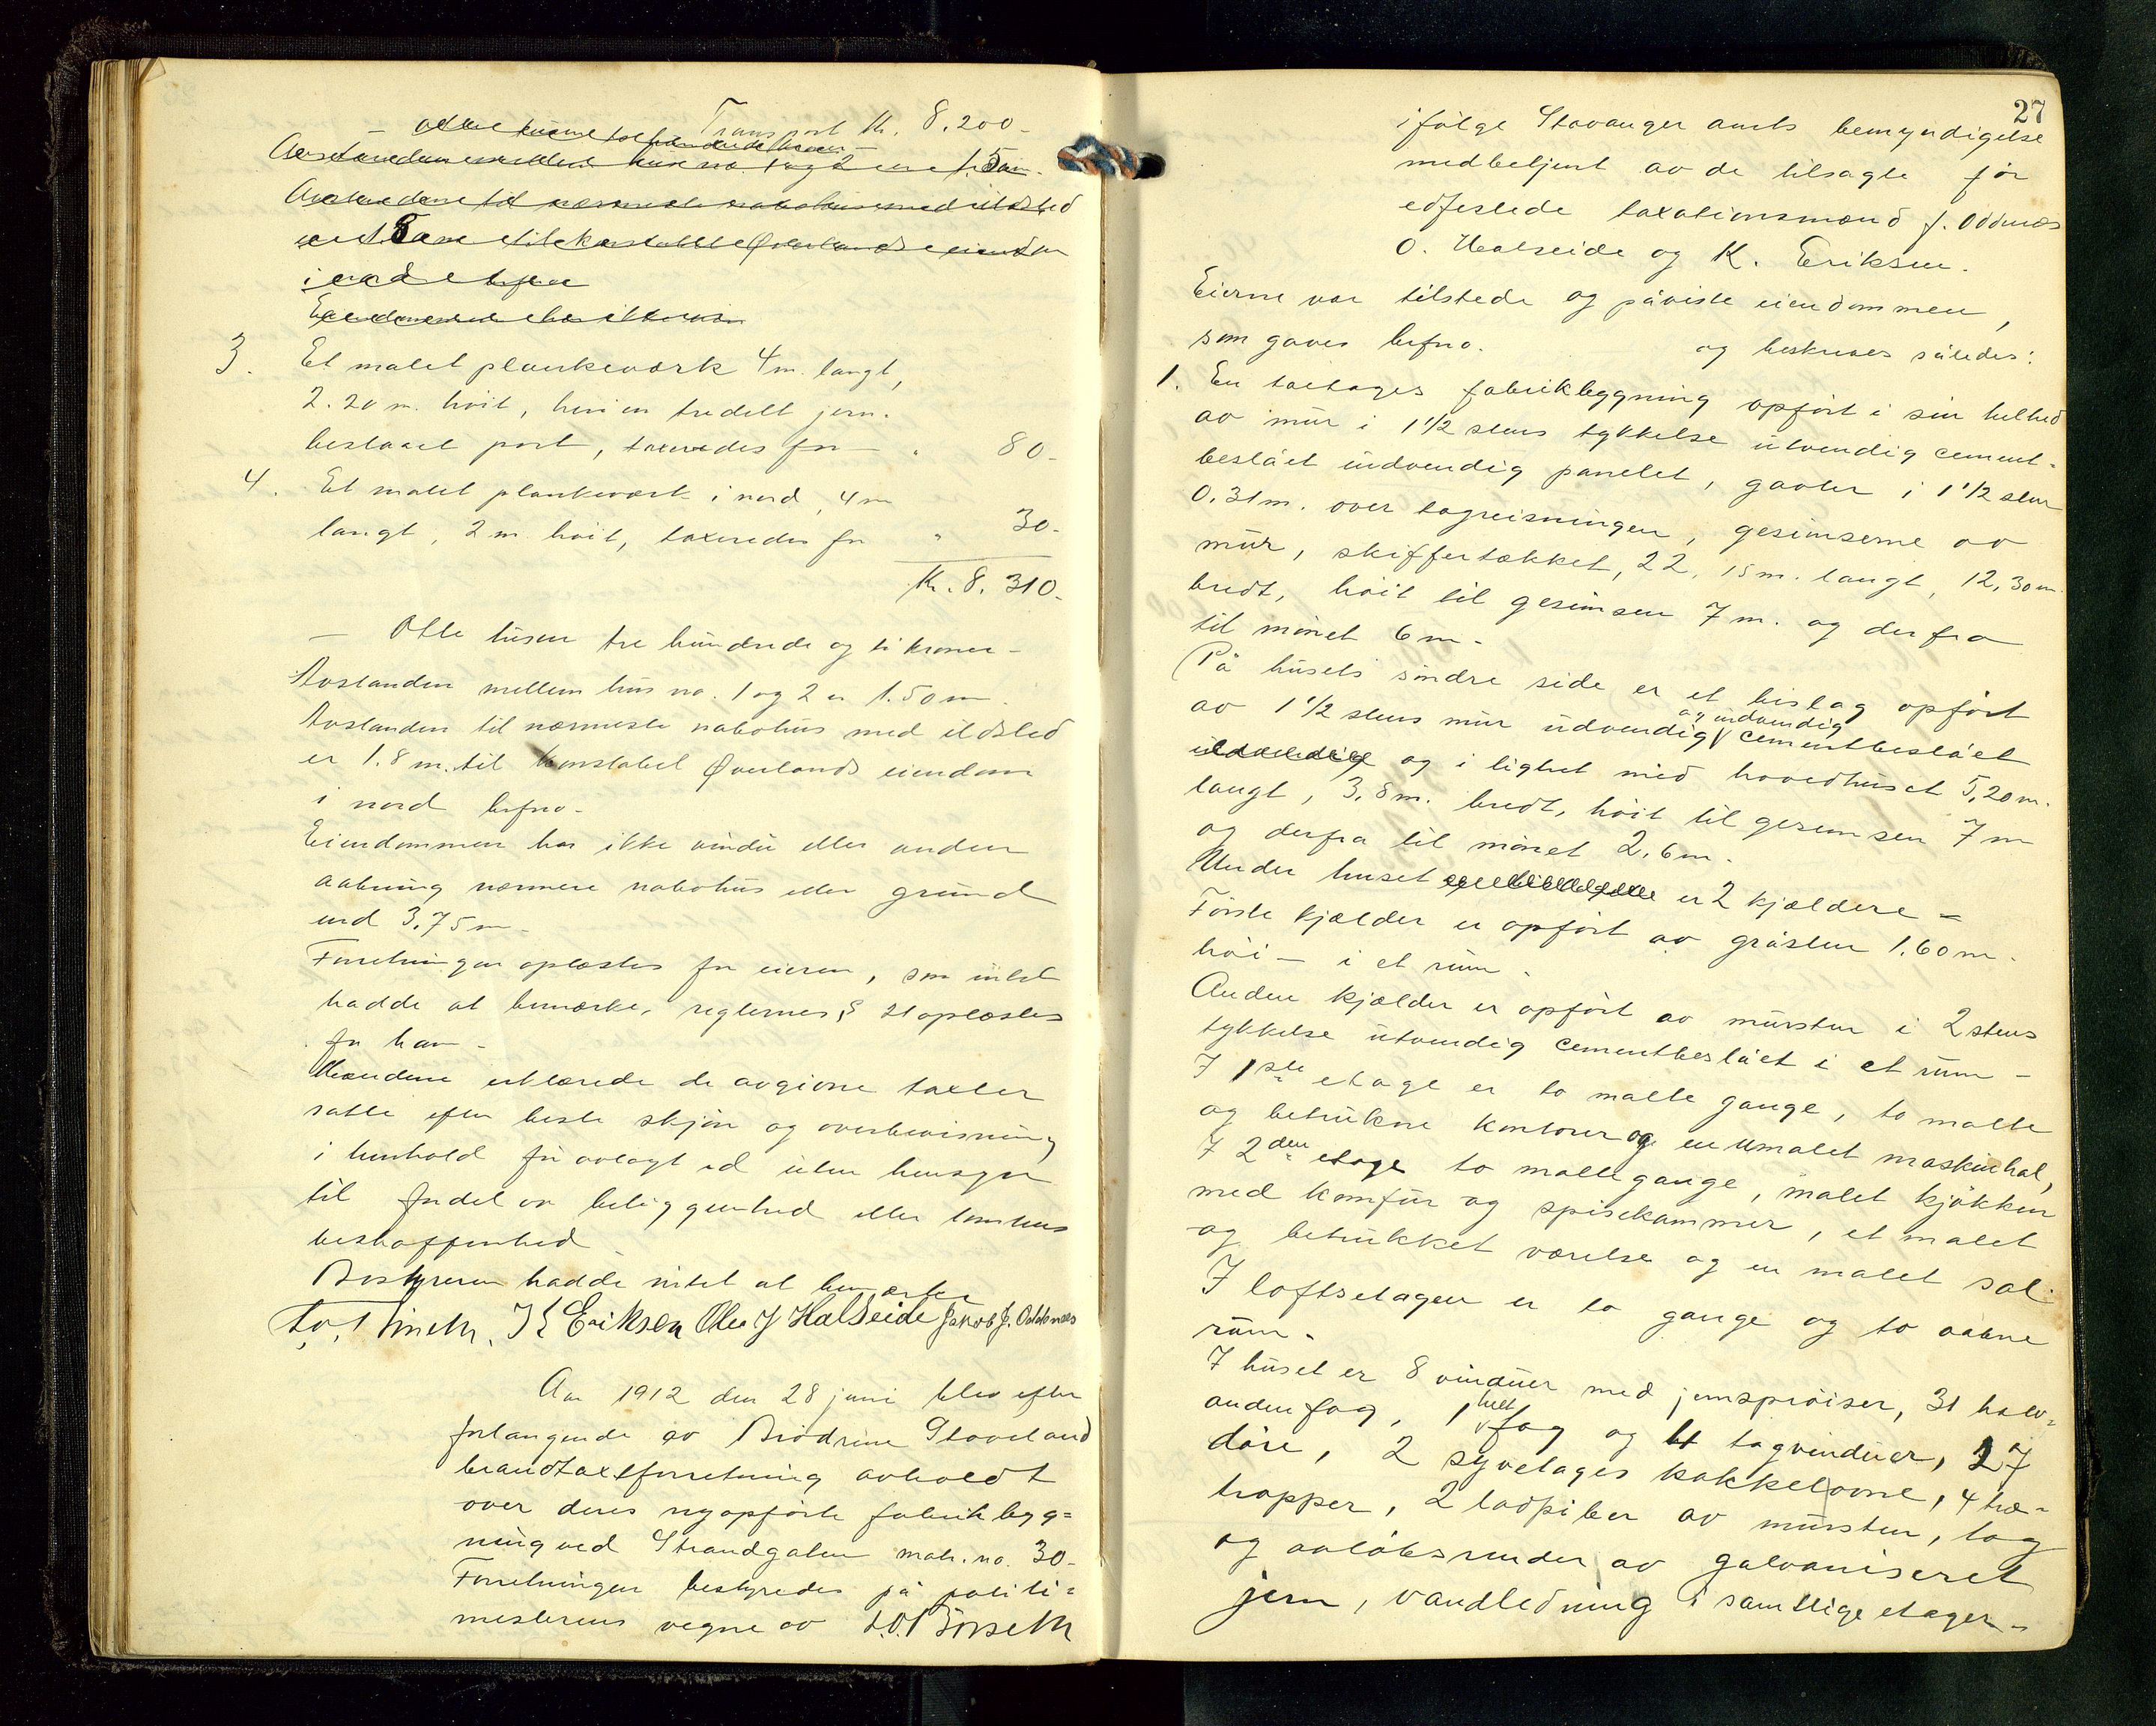 Transport Kr. 8.200-
Avstanden mellem hus no. 1 og 2 er 1.5 m.
Avstandene til nærmeste nabohus med ildsted
er 1.8 m til konstabel Øverlands eiendom
i nord befra
Eiendommen har ikke
3. Et malet plankeværk 4 m. langt,
2.20 m. høit, heri en tredelt jern-
beslaaet port, taxeredes for " 80-
4. Et malet plankeværk i nord, 4 m
langt, 2 m. høit, taxeredes for " 30-
Kr. 8.310-
— Otte tusen tre hundrede og ti kroner —
Avstanden mellem hus no. 1 og 2 er 1.50 m.
Avstanden til nærmeste nabohus med ildsted
er 1.8 m. til konstabel Øverlands eiendom
i nord befra-
Eiendommen har ikke vindu eller anden
aabning nærmere nabohus eller grund
end 3,75 m-
Forretningen oplæstes for eieren, som intet
hadde at bemærke, reglernes § 21 oplæstes
for ham-
Mændene erklærede de avgivne taxter
satte efter beste skjøn og overbevisning
i henhold før avlagt ed uten hensyn
til fordel av beliggenhed eller tomtens
beskaffenhed
Bestyreren hadde intet at bemærke
K Eriksen Ole J Halseide Jakob J. Oddenæs
Aar 1912 den 28 juni blev efter
forlangende av Brødrene Staveland
brandtaxtforretning avholdt
over deres nyopførte fabrikbyg=
ning ved Strandgaten matr. no. 30-
Forretningen bestyredes på politi=
mesterens vegne av
27
ifølge Stavanger amts bemyndigelse
medbetjent av de tilsagte før
edfestede taxationsmænd J. Oddenæs
O. Halseide og K. Eriksen.
Eierne var tilstede og påviste eiendommen,
som gaves befra. og beskrives således:
1. En toetages fabrikbygning opført i sin helhed
av mur i 1½ stens tykkelse utvendig cement-
beslået indvendig panelet, gavler i 1½ sten
0.31 m. over tagreisningen, gesimserne av
mur, skiffertækket, 22,15 m. langt, 12,30 m
bredt, høit til gesimsen 7 m. og derfra
til mønet 6 m-
På husets søndre side er et bislag opført
av 1½ stens mur udvendig og indvendig cementbeslået
og i lighet med hovedhuset 5,20 m.
langt, 3,8 m. bredt, høit til gesimsen 7 m
og derfra til mønet 2,6 m.
Under huset er 2 kjældere -
Første kjælder er opført av gråsten 1.60 m.
høi - i et rum.
Anden kjælder er opført av mursten i 2 stens
tykkelse utvendig cementbeslået i et rum -
I 1ste etage er to malte gange, to malte
og betrukne kontorer og en umalet maskinhal,
I 2den etage to malte gange, malet kjøkken
med komfur og spisekammer, et malet
og betrukket værelse og en malet sal.
I loftsetagen er to gange og to aabne
rum.
I huset er 8 vinduer med jernsprøiser, 31 halv-
anden fag, 1 helt fag og 4 tagvinduer, 27
døre, 2 syvetages kakkelovne, 4 træ-
trapper, 2 ladpiber av mursten, tag
og avløbsrender av galvaniseret
jern, vandledning i samtlige etager-